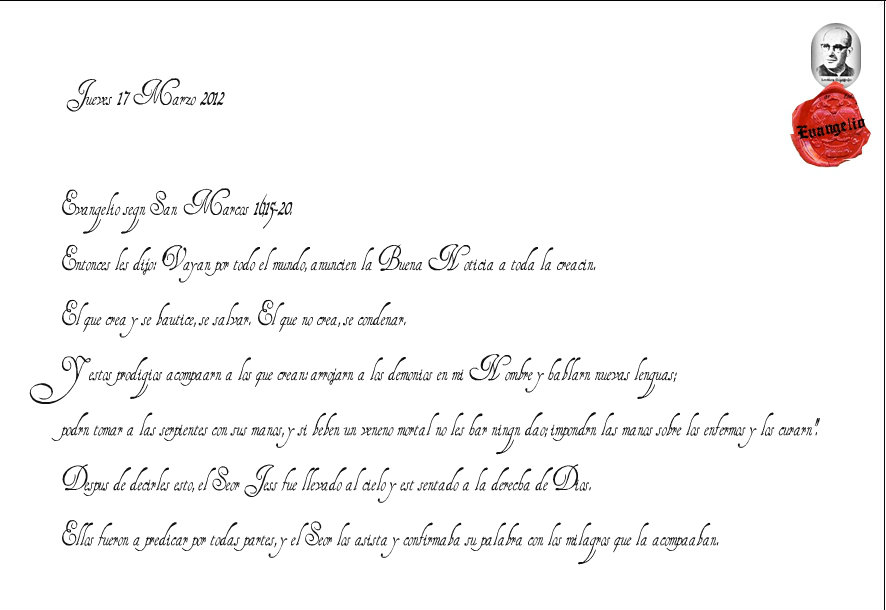 Jueves 17 Marzo 2012
Evangelio
Evangelio segn San Marcos 16,15-20.
Entonces les dijo: Vayan por todo el mundo, anuncien la Buena Noticia a toda la creacin.
El que crea y se bautice, se salvar. El que no crea, se condenar.
Y estos prodigios acompaarn a los que crean: arrojarn a los demonios en mi Nombre y hablarn nuevas lenguas;
podrn tomar a las serpientes con sus manos, y si beben un veneno mortal no les har ningn dao; impondrn las manos sobre los enfermos y los curarn".
Despus de decirles esto, el Seor Jess fue llevado al cielo y est sentado a la derecha de Dios.
Ellos fueron a predicar por todas partes, y el Seor los asista y confirmaba su palabra con los milagros que la acompaaban.